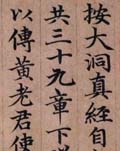 按大洞真經自
共三十九章下
以傳黃老君使